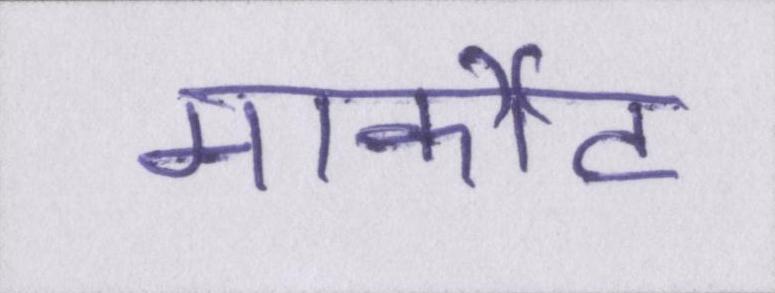 मार्कोट